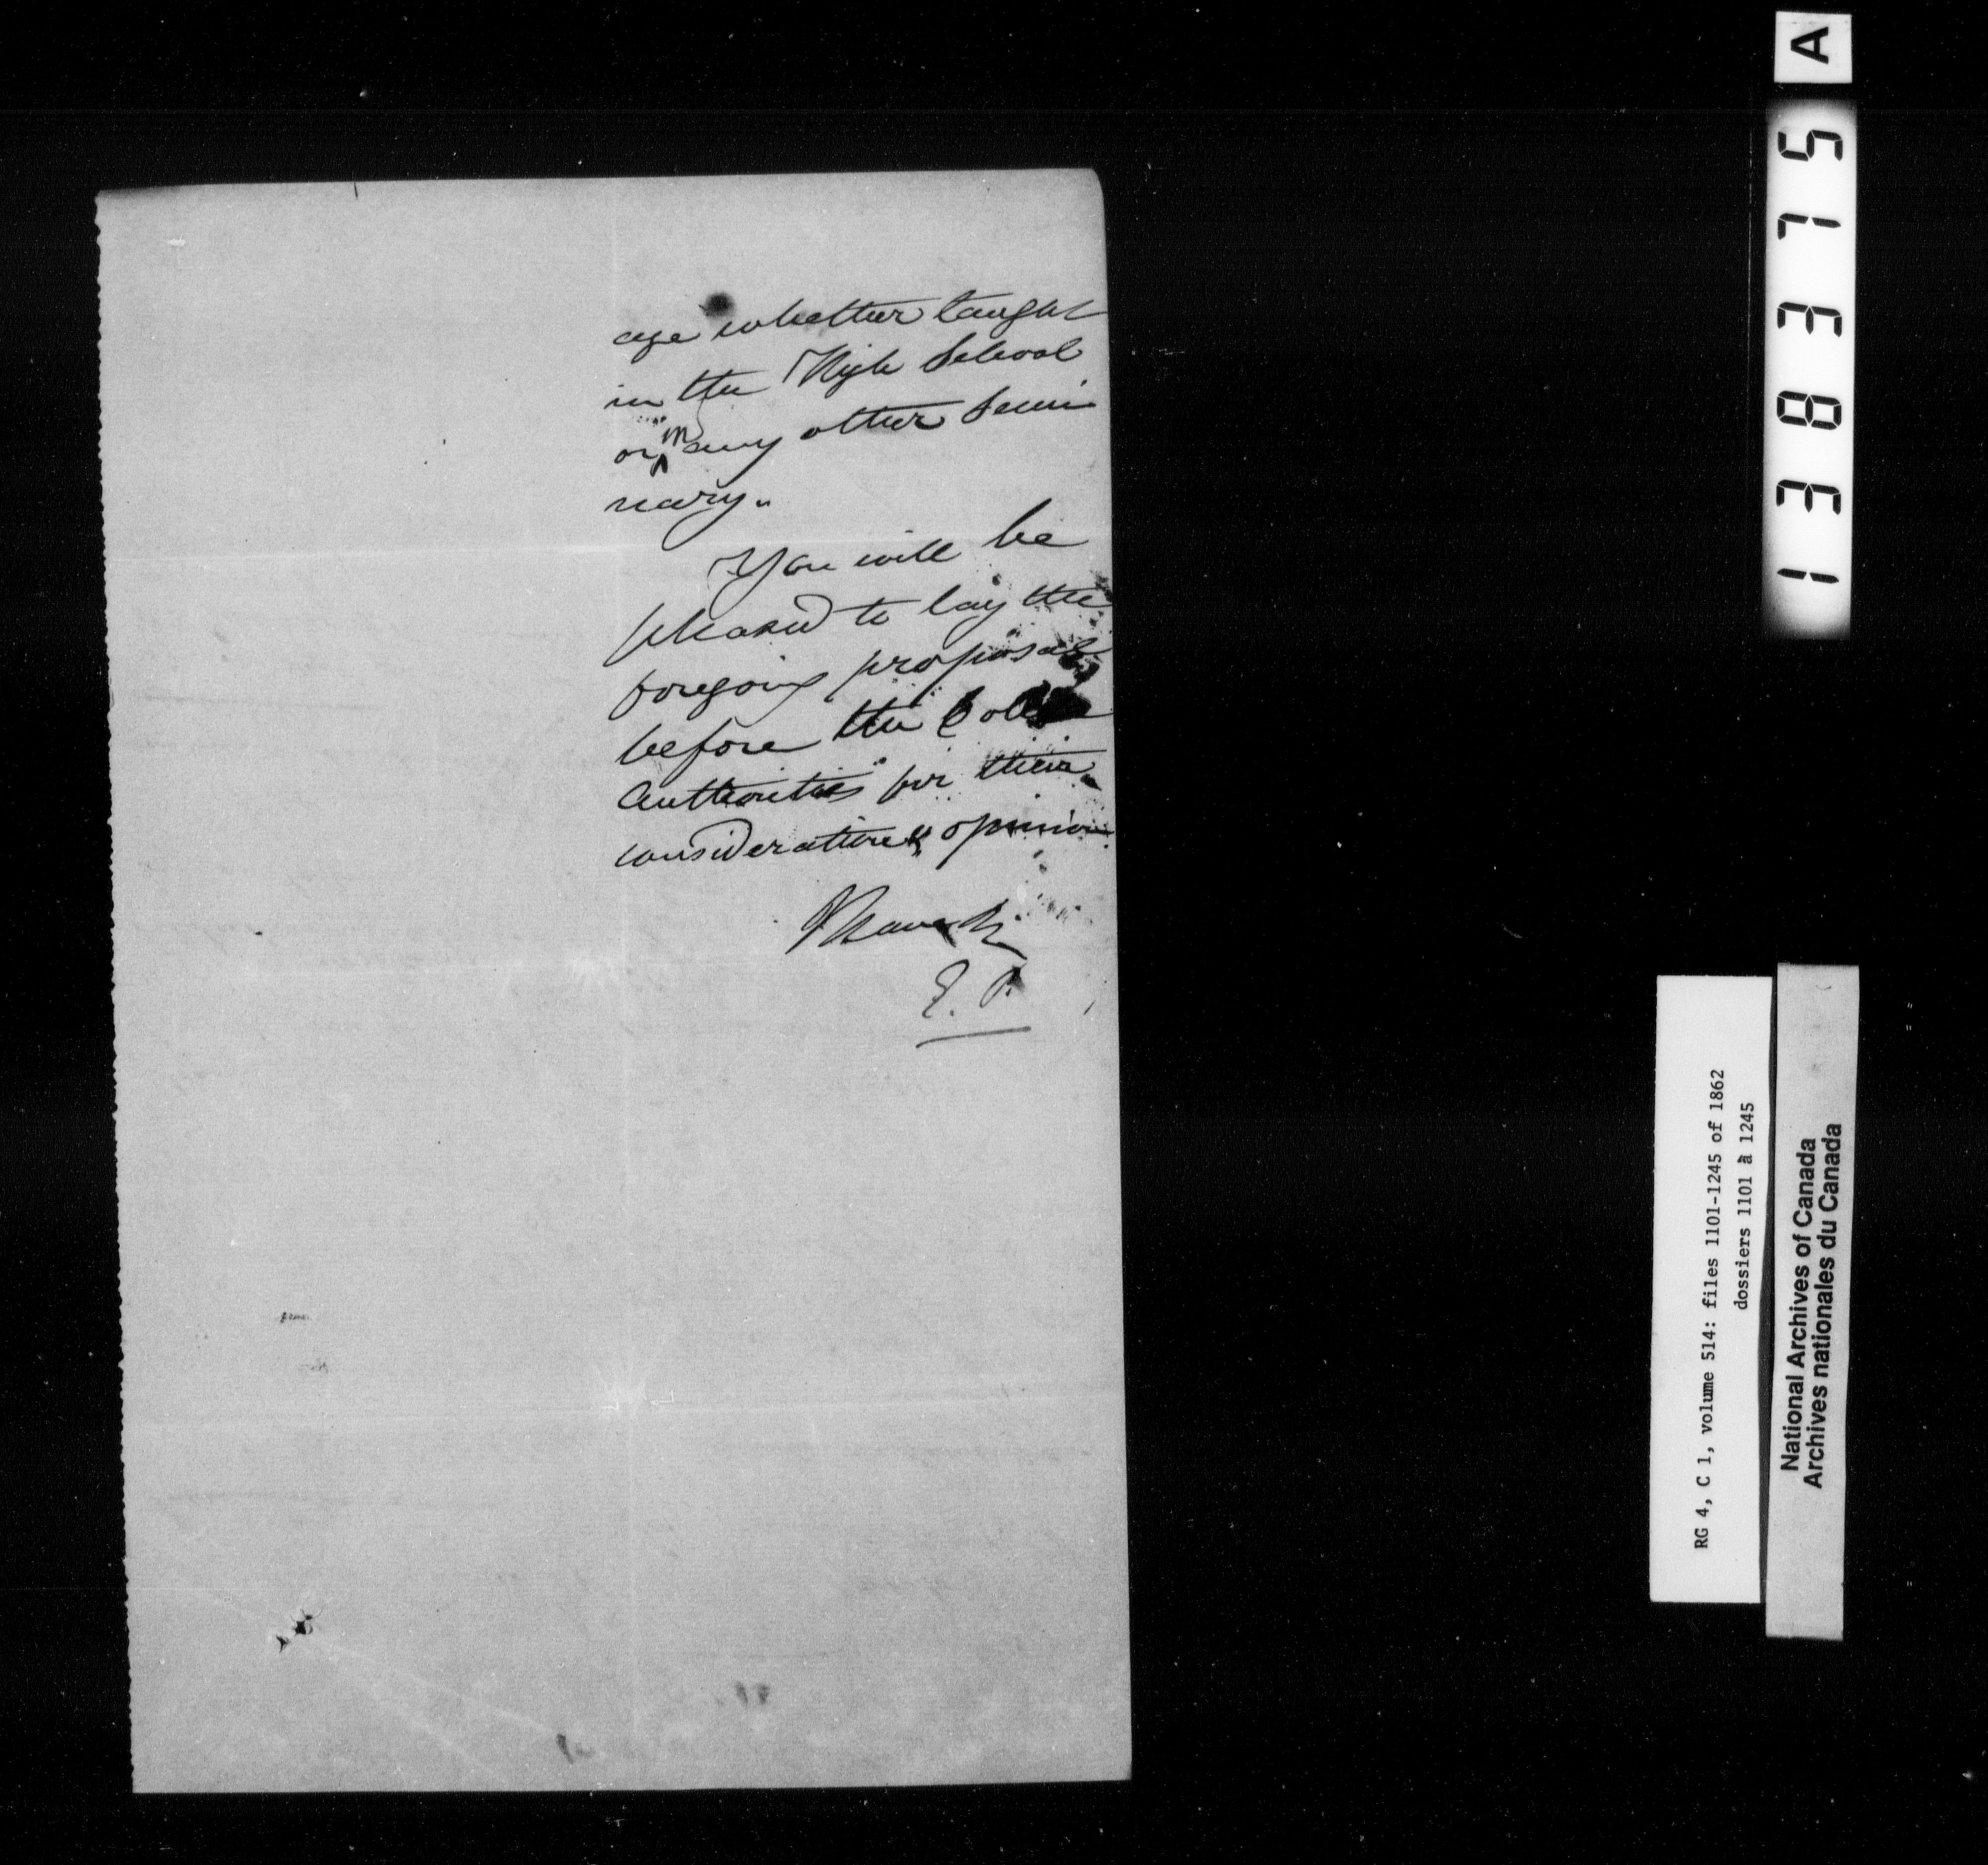 age whether taught
in the High School
or in any other Semi
nary.
You will be
pleased to lay the
foregoing proposal
before the
Authorities for their
consideration & opinion
I have &c
E. P.
A
138375
RG 4, C 1, volume 514: files 1101-1245 of 1862
dossiers 1101 à 1245
National Archives of Canada
Archives nationales du Canada